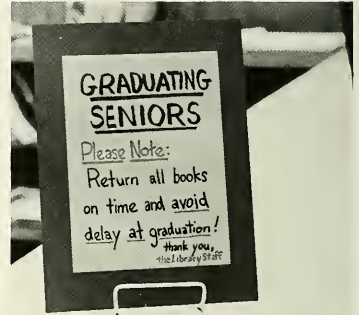 GRADUATING
SENIORS
Please Note:
Return all books
on time and avoid
delay at graduation!
thank you,
the Library Staff